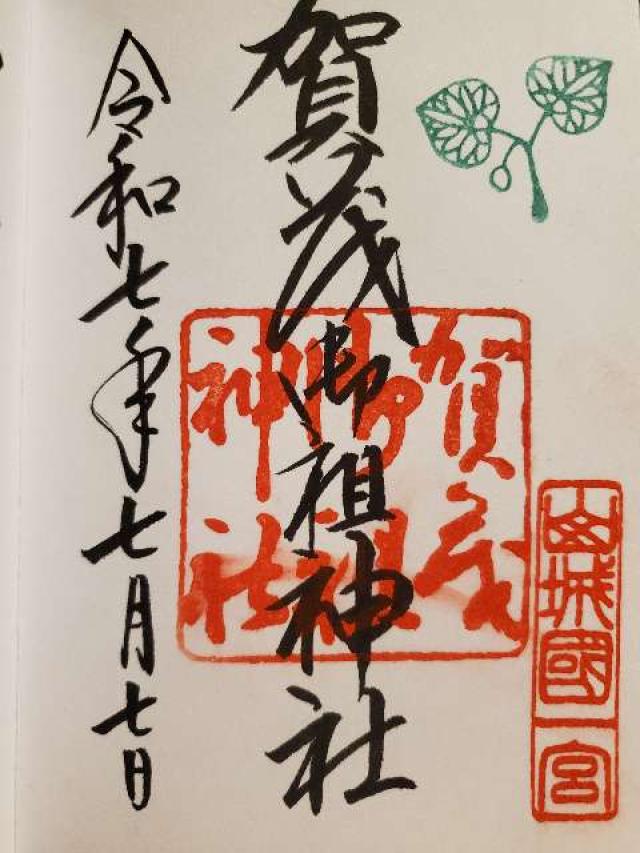 山城國一宮
賀茂御祖神社
賀茂
御祖
神社
令和七年七月七日